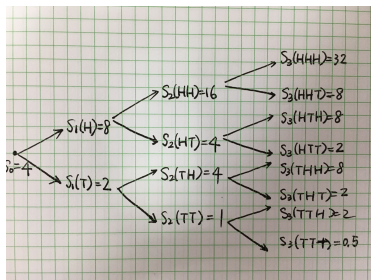 S₀=4
S₁(H)=8
S₁(T)=2
S₂(HH)=16
S₂(HT)=4
S₂(TH)=4
S₂(TT)=1
S₃(HHH)=32
S₃(HHT)=8
S₃(HTH)=8
S₃(HTT)=2
S₃(THH)=8
S₃(THT)=2
S₃(TTH)=2
S₃(TTT)=0.5